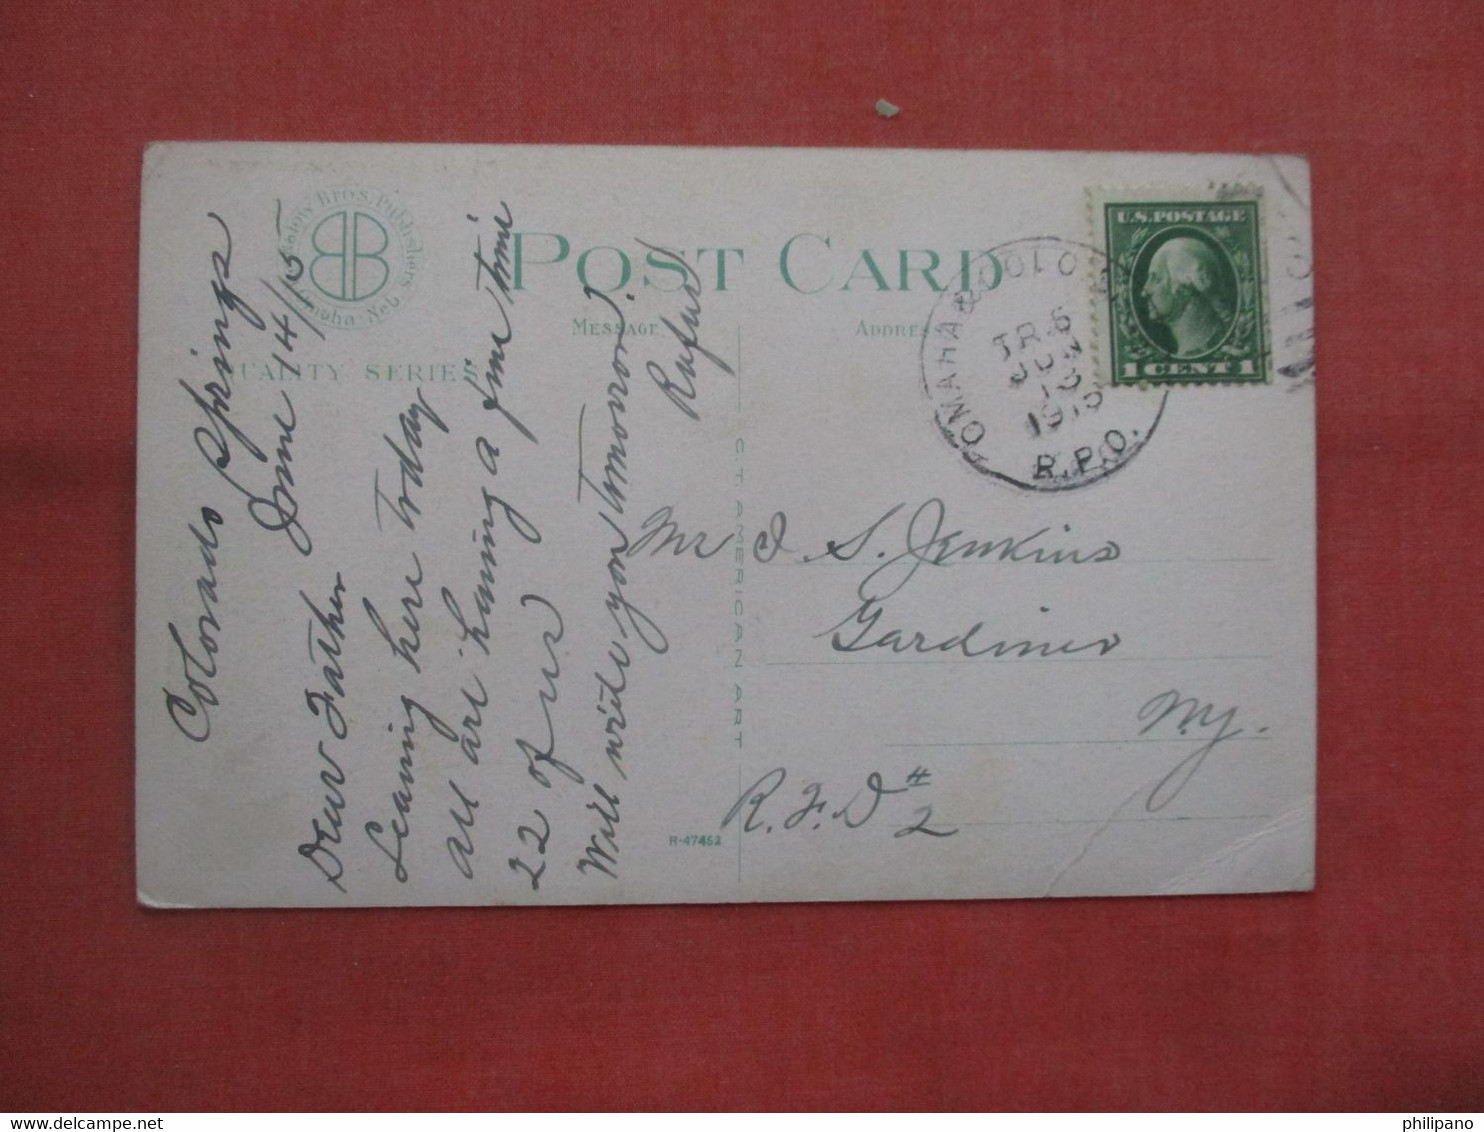 Colorado Springs
June 14/15
Dear Father
Leaving here today
All are having a fine time
22 of us
Will write you tomorrow.
Rufus
Bros. Publishers
Omaha Neb
QUALITY SERIES
POST CARD
MESSAGE
ADDRESS
CTAMERICAN ART
R-47452
OMAHA &
TR.6
JUN
1915
R.P.O.
U.S. POSTAGE
1 CENT 1
Mr I. S. Jenkins
Gardiner
N.Y.
R.F.D #2
philipano